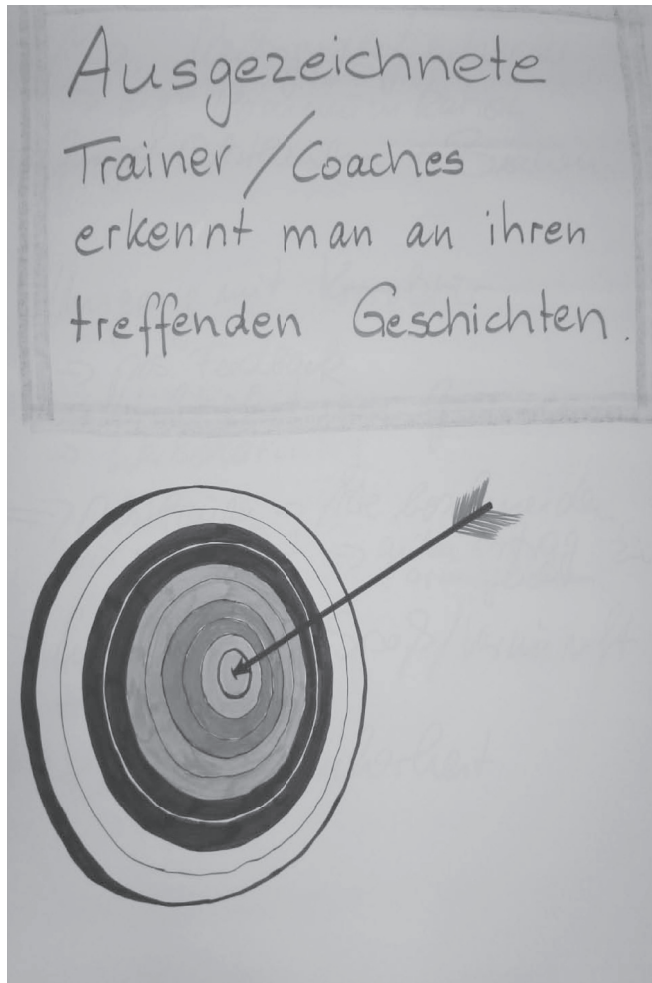 Ausgezeichnete
Trainer/Coaches
erkennt man an ihren
treffenden Geschichten.